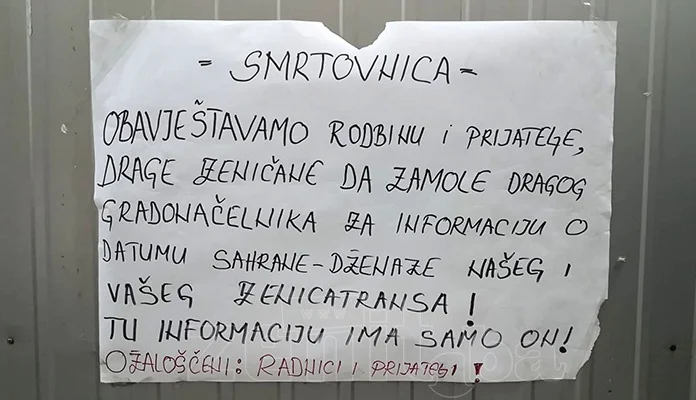 - SMRTOVNICA -
OBAVJEŠTAVAMO RODBINU i PRIJATELJE,
DRAGE ZENIČANE DA ZAMOLE DRAGOG
GRADONAČELNIKA ZA INFORMACIJU O
DATUMU SAHRANE-DŽENAZE NAŠEG I
VAŠEG ZENICATRANSA!
TU INFORMACIJU IMA SAMO ON!
OŽALOŠČENI: RADNICI I PRIJATELJI!